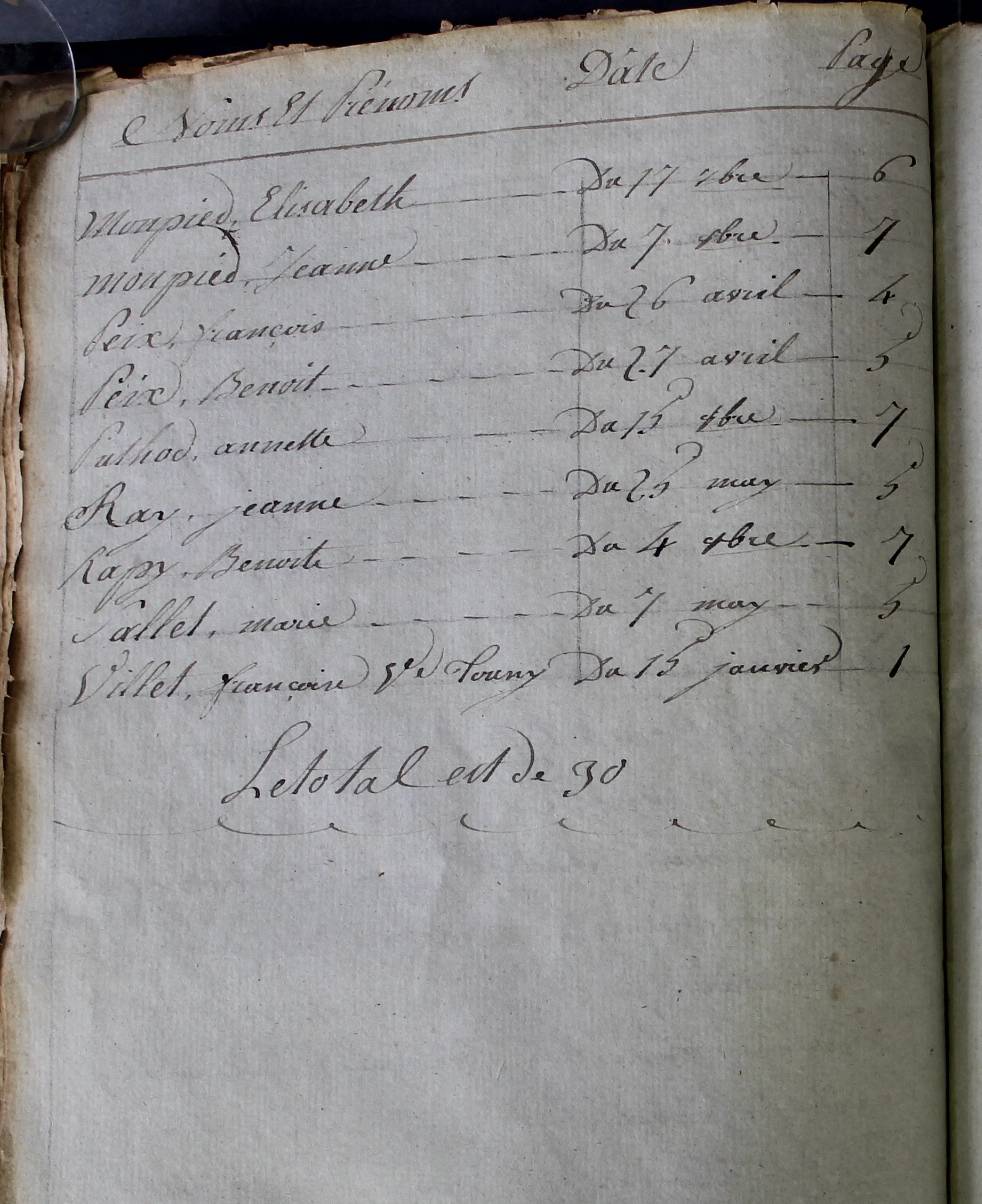 Noms Et Prénoms Dâte Page
Monpied, Elisabeth Du 17 bre 6
monpied, Jeanne Du 7 bre 7
Peix, françois Du 26 avril 4
Peix, Benoit Du 27 avril 5
Pathod, annette Du 15 bre 7
Ray, jeanne Du 25 may 5
Rapy, Benoite Du 4 bre 7
Sallet, marie Du 7 may 5
Villet, françoise Ve Du 15 janvier 1
Le total est de 30